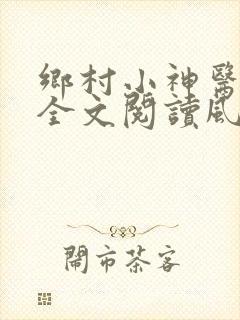 鄉村小神醫
全文閱讀風
鬧市茶客